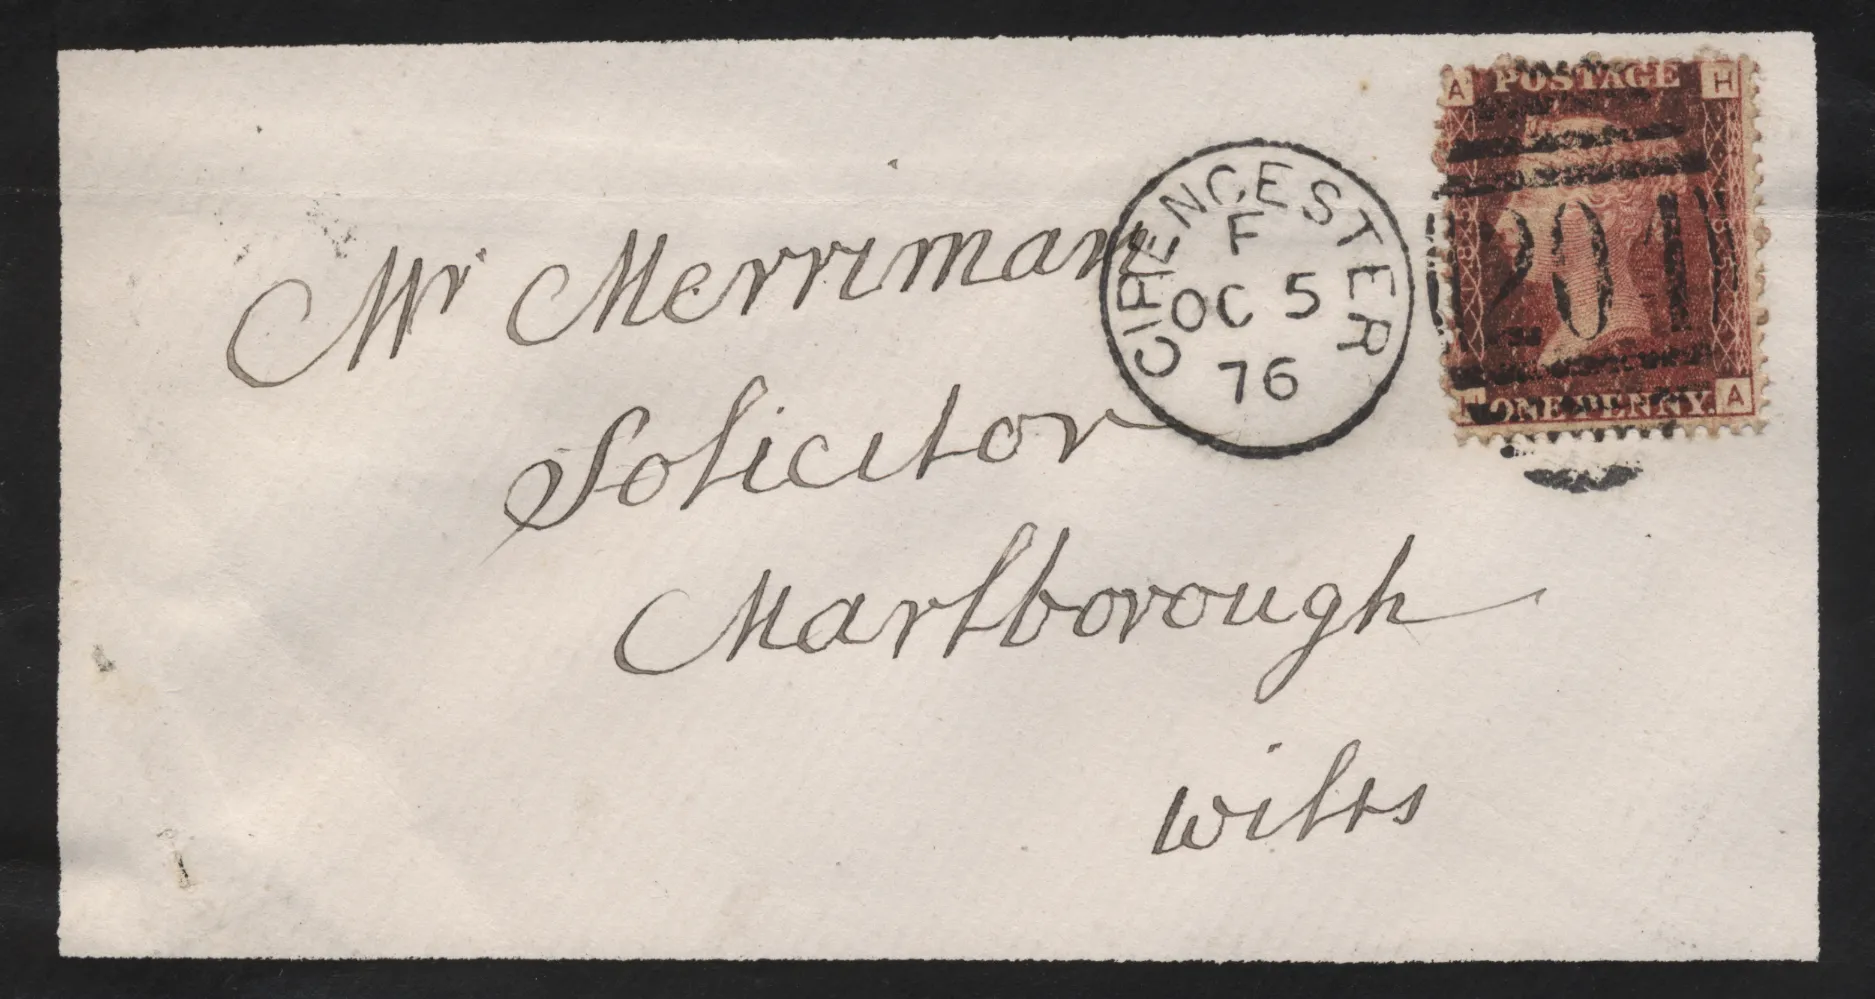 A POSTAGE H
ONE PENNY. A
201
CIRENCESTER
F
OC 5
76
Mr Merriman
Solicitor
Marlborough
Wilts